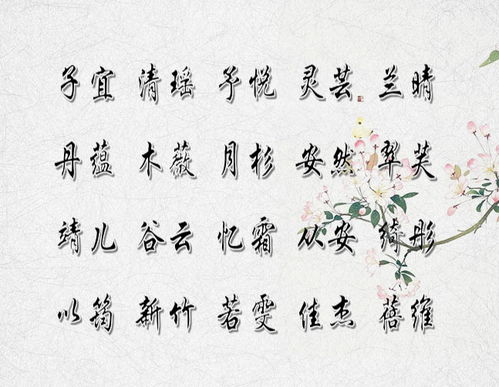 子宜 清瑶 予悦 灵芸 兰晴
丹蕴 木薇 月杉 安然 翠芙
靖儿 谷云 忆霜 从安 绮彤
以筠 新竹 若雯 佳杰 蓓维